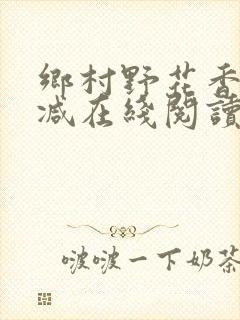 鄉村野花香
减在綫閱讀
啵啵一下奶茶